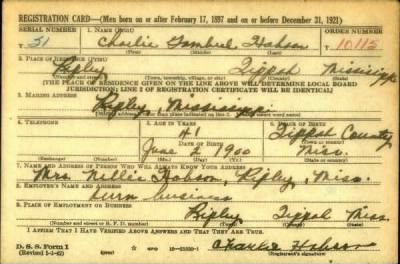 REGISTRATION CARD—(Men born on or after February 17, 1897 and on or before December 31, 1921)
SERIAL NUMBER 1. NAME (Print) ORDER NUMBER
T 51 Charlie Hobson T 10115
2. PLACE OF RESIDENCE (Print)
Ripley Tippah Mississippi
(Number and street) (Town, township, village, or city) (County) (State)
[THE PLACE OF RESIDENCE GIVEN ON THE LINE ABOVE WILL DETERMINE LOCAL BOARD
JURISDICTION; LINE 2 OF REGISTRATION CERTIFICATE WILL BE IDENTICAL]
3. MAILING ADDRESS
Ripley, Mississippi
4. TELEPHONE 5. AGE IN YEARS 6. PLACE OF BIRTH
41 Tippah County
DATE OF BIRTH (Town or county)
June 2 1900 Miss.
(Exchange) (Number) (Mo.) (Day) (Yr.) (State or country)
7. NAME AND ADDRESS OF PERSON WHO WILL ALWAYS KNOW YOUR ADDRESS
Mrs. Nellie Hobson, Ripley, Miss.
8. EMPLOYER'S NAME AND ADDRESS
business
9. PLACE OF EMPLOYMENT OR BUSINESS
Ripley Tippah Miss.
(Number and street or R. F. D. number) (Town) (County) (State)
I AFFIRM THAT I HAVE VERIFIED ABOVE ANSWERS AND THAT THEY ARE TRUE.
D. S. S. Form 1
(Revised 1-1-42) Charlie Hobson
(Registrant's signature)